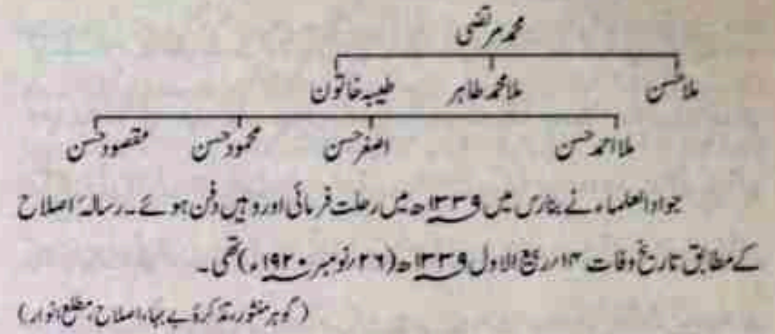 محمد مرتضی
ملا حسن ملا محمد طاہر طیبہ خاتون
ملا احمد حسن اصغر حسن محمود حسن مقصود حسن
جواد العلماء نے بنارس میں ۱۳۳۹ھ میں رحلت فرمائی اور وہیں دفن ہوئے۔ رسالۂ اصلاح
کے مطابق تاریخ وفات ۱۴؍ ربیع الاول ۱۳۳۹ھ (۲۶؍ نومبر ۱۹۲۰ء) تھی۔
(گوہر منثور، تذکرۂ بے بہا، اصلاح، مطلع انوار)